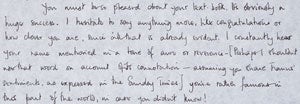 You must be pleased about your last book. It's obviously a
huge success. I hesitate to say anything more, like congratulations or
how clever you are, since intellect is already evident. I constantly hear
your name mentioned in a tone of awe or reverence – [Perhaps I shouldn't
use that word on account of its connotation – assuming you share
sentiments, as expressed in the Sunday Times] you're rather famous in
this part of the world, in case you didn't know!